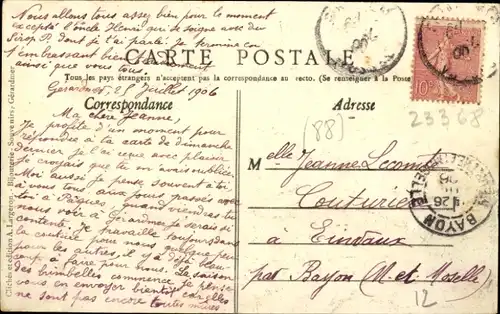 Nous allons tous assez bien pour le moment
excepté l'oncle Henri qui se soigne avec du
Sirop P. dont je t'ai parlé. Je termine en
t'embrassant bien
ainsi que vous tous.
CARTE POSTALE
Tous les pays étrangers n'acceptent pas la correspondance au recto. (Se renseigner à la Poste
Gérardmer 28 Juillet 1906
Correspondance
Ma chère Jeanne,
Je profite d'un moment pour
répondre à ta carte de dimanche
dernier je l'ai reçue avec plaisir
Je croyais que tu m'avais oubliée.
Moi aussi je pense souvent à toi
à vous tous aux jours passés avec
toi à Pâques, quand viendras-tu
nous voir à Gérardmer je serais si
contente. Je travaille toujours dans
la couture pour nous
pour les autres, il y a du
coup à faire pour nous. La saison
des brimbelles commence, je pense
vous en envoyer bientôt car elles
ne sont pas encore toutes mûres
Adresse
(88)
10
23368
Melle Jeanne Lecomte
Couturière
à Einvaux
par Bayon (M. et Moselle)
12
BAYON
Clichés et édition A. Largeron, Bijouterie, Souvenirs, Gérardmer